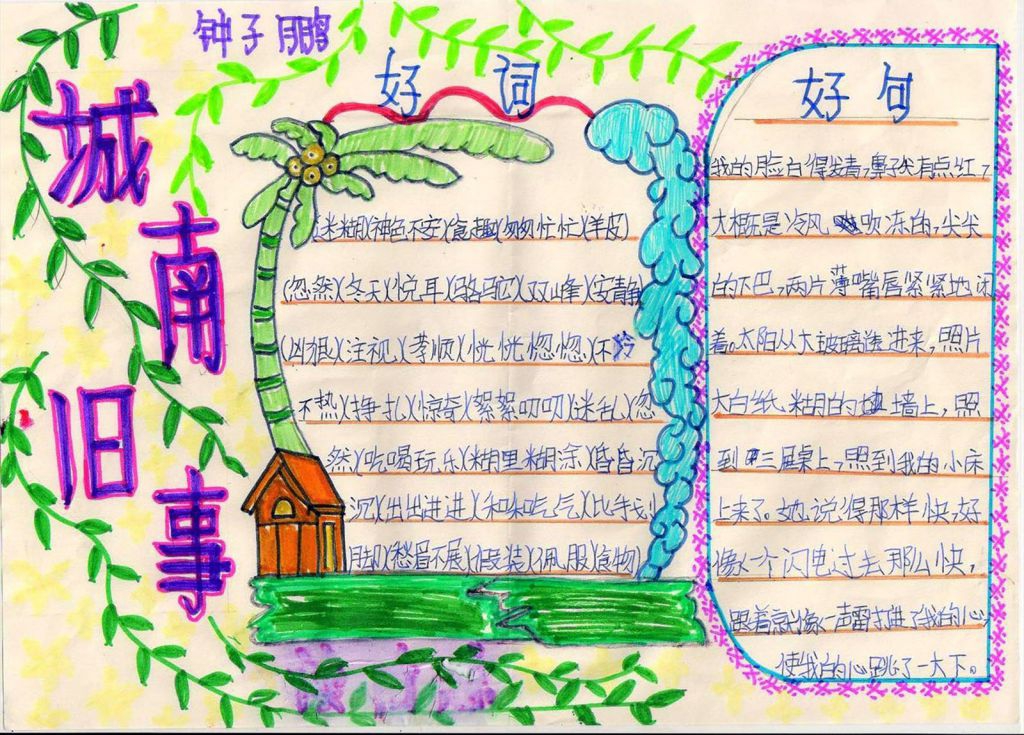 钟子鹏
城南旧事
好词
迷糊)(神色不安)(食趣)(匆匆忙忙)(羊皮)
(忽然)(冬天)(悦耳)(骆驼)(双峰)(安静
(凶狠)(注视)(孝顺)(恍恍惚惚)(不
不热)(挣扎)(惊奇)(絮絮叨叨)(迷乱)(忽
然)(吃喝玩乐)(糊里糊涂)(昏昏沉
沉)(出出进进)(和 吃气)(比手划
脚)(愁眉不展)(假装)(佩服)(食物)
好句
我的脸白得发青,鼻子尖有点红,
大概是冷风吹冻的,尖尖
的下巴,两片薄嘴唇紧紧地闭
着。太阳从大玻璃透进来,照片
大白纸糊的墙上,照
到三屉桌上,照到我的小床
上来了。她说得那样快,好
像一个闪电过去那么快,
跟着就像一声雷打进了我的心,
使我的心跳了一大下。